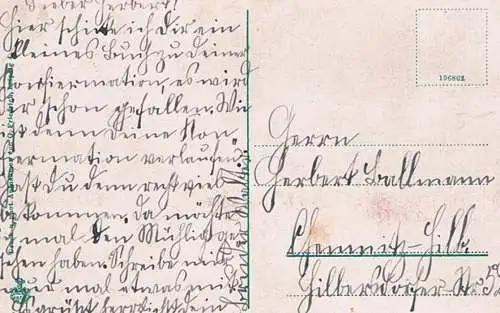 Lieber Herbert!
Hier schicke ich Dir ein
kleines Buch zu Deiner
Konfirmation, es wird
Dir schon gefallen. Wie
ist denn Deine Kon
firmation verlaufen?
Hast du denn recht viel
bekommen. Da möchte
mal den Mühlig ge
sehen haben. Schreibe mir
mal etwas mit.
Es grüßt herzlich dein
196862
Herrn
Herbert Ballmann
Chemnitz-Hilb.
Hilbersdorfer Str.